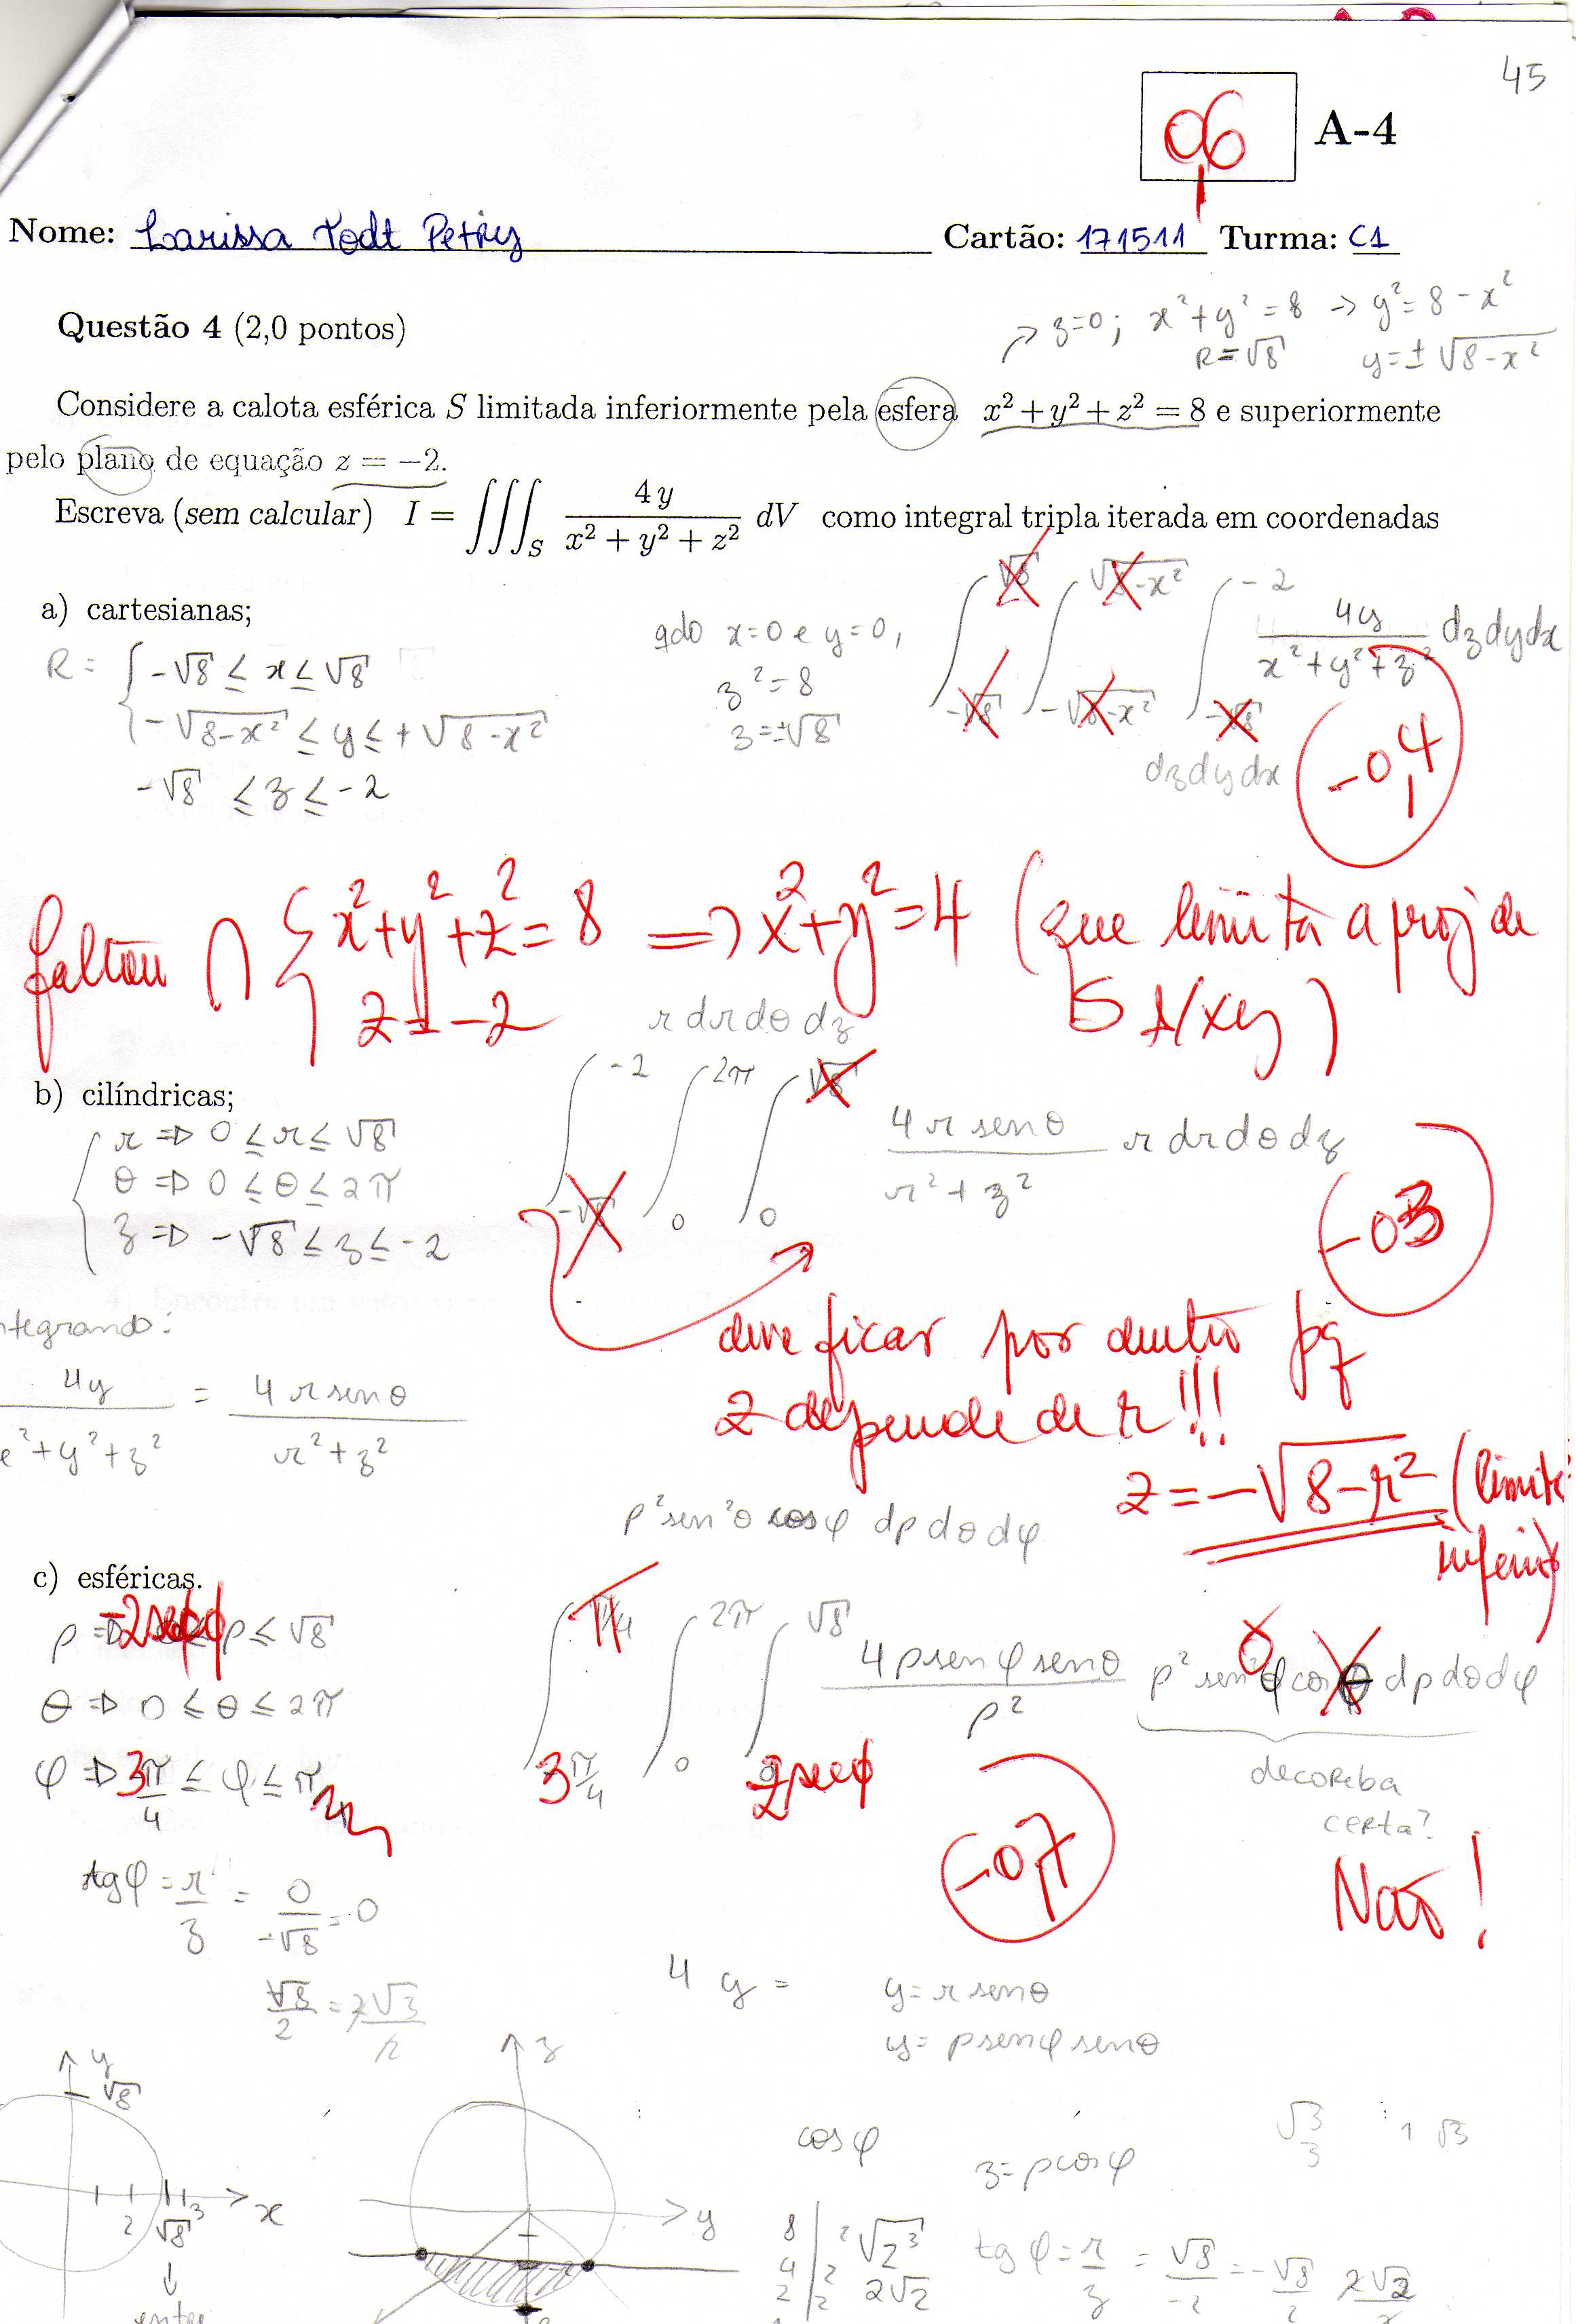 45
0,6 A-4
Nome: Larissa Todt Petry Cartão: 171511 Turma: C1
Questão 4 (2,0 pontos)
→ z=0; x²+y²=8 → y²=8-x²
R=√8 y=±√8-x²
Considere a calota esférica S limitada inferiormente pela esfera x² + y² + z² = 8 e superiormente
pelo plano de equação z = −2.
Escreva (sem calcular) I = ∫∫∫_S 4y / (x² + y² + z²) dV como integral tripla iterada em coordenadas
a) cartesianas;
R = { -√8 ≤ x ≤ √8
-√8-x² ≤ y ≤ +√8-x²
-√8 ≤ z ≤ -2
qdo x=0 e y=0,
z²=8
z=±√8
∫_{-√8}^{√8} ∫_{-√8-x²}^{√8-x²} ∫_{-√8}^{-2} 4y / (x²+y²+z²) dz dy dx
dz dy dx
-0,4
faltou ∩ { x²+y²+z²=8 ⇒ x²+y²=4 (que limita a proj de
z=-2 S s/xy)
r dr dθ dz
b) cilíndricas;
{ r ⇒ 0 ≤ r ≤ √8
θ ⇒ 0 ≤ θ ≤ 2π
z ⇒ -√8 ≤ z ≤ -2
∫_{-√8}^{-2} ∫_0^{2π} ∫_0^{√8} 4 r sen θ / (r²+z²) r dr dθ dz
-0,3
deve ficar por dentro pq
z depende de r !!!
z = -√8-r² (limite
inferior)
ntegrando:
4y / (x²+y²+z²) = 4 r sen θ / (r²+z²)
ρ² sen²θ cos φ dρ dθ dφ
c) esféricas.
ρ ⇒ -2 sec φ ≤ ρ ≤ √8
θ ⇒ 0 ≤ θ ≤ 2π
φ ⇒ 3π/4 ≤ φ ≤ π
∫_{3π/4}^{π} ∫_0^{2π} ∫_{-2 sec φ}^{√8} 4ρ sen φ sen θ / ρ² ρ² sen φ cos θ dρ dθ dφ
decoreba
certa?
Não!
-0,7
tg φ = r/z = 0/-√8 = 0
√8/2 = 2√3
4y = y = r sen θ
y = ρ sen φ sen θ
y
√8
2 √8 3 x
↓
z
y
cos φ
z = ρ cos φ
√3/3 1 √3
8 | 2 √2³
4 | 2 2√2
2 | 2
tg φ = r/z = √8/-2 = -√8/2 2√2